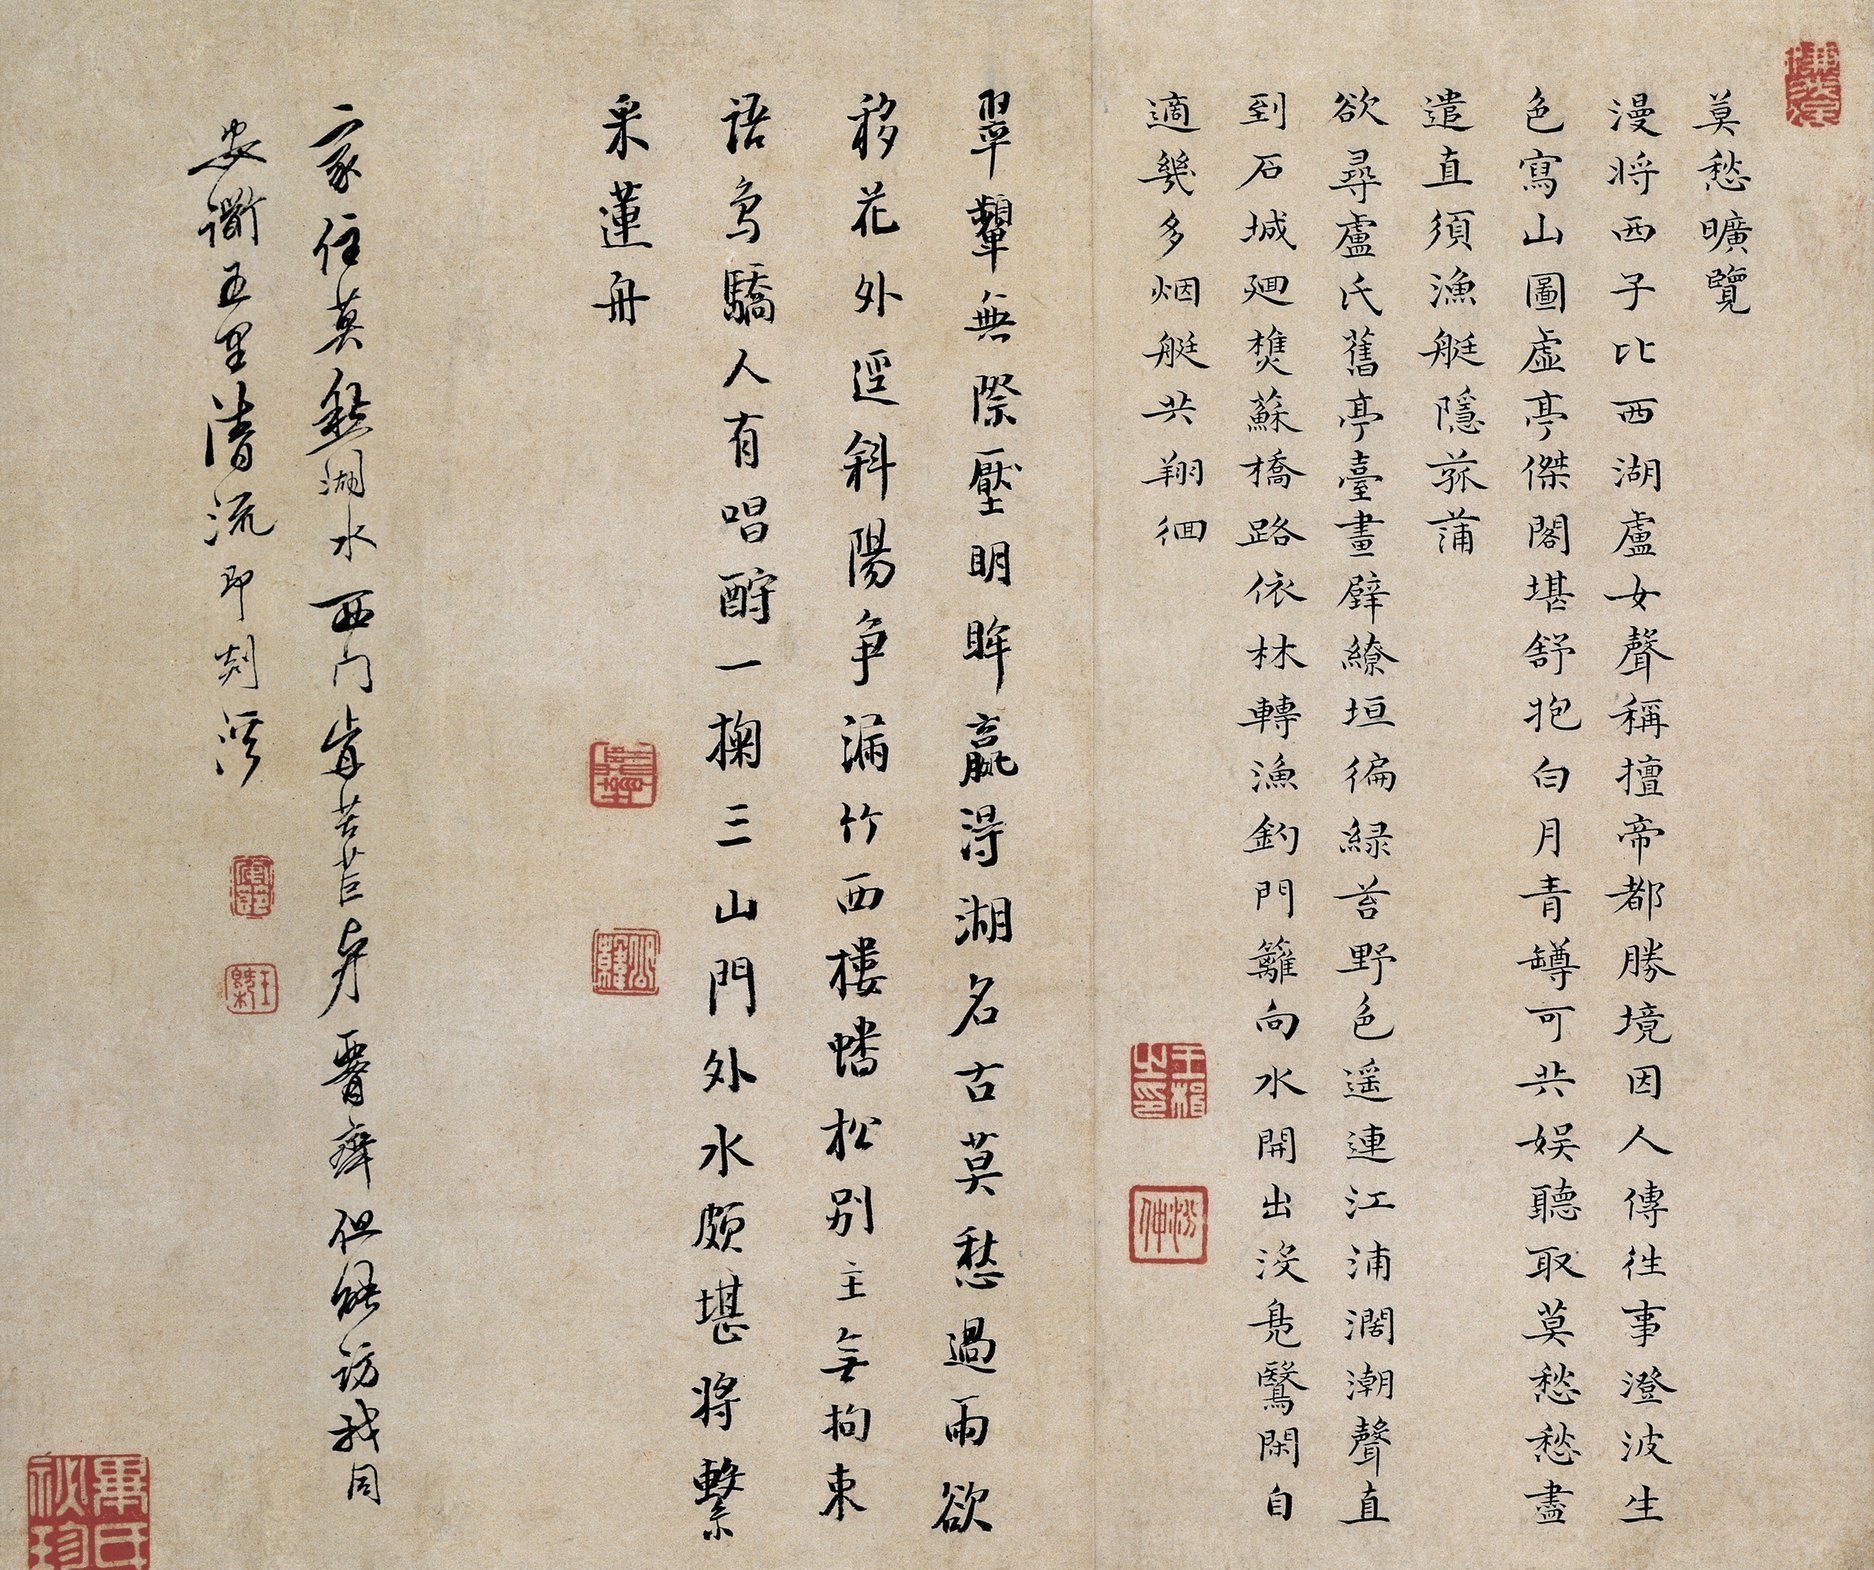 莫愁曠覽
漫將西子比西湖盧女聲稱擅帝都勝境因人傳徃事澄波生
色寫山圖虛亭傑閣堪舒抱白月青罇可共娛聽取莫愁愁盡
遣直須漁艇隱菰蒲
欲尋盧氏舊亭臺畫壁繚垣徧綠苔野色遥連江浦濶潮聲直
到石城廻樵蘇橋路依林轉漁釣門籬向水開出没鳧鷖閑自
適幾多烟艇共翔徊
翠顰無際壓明眸贏得湖名古莫愁過雨欲
移花外逕斜陽爭漏竹西樓蟠松別主無拘束
語鳥驕人有唱酧一掬三山門外水頗堪將繫
采蓮舟
家住莫愁湖水西門前苦苣與齊但能訪我同
安衢五里清流即剡溪
王楫之印
汾仲